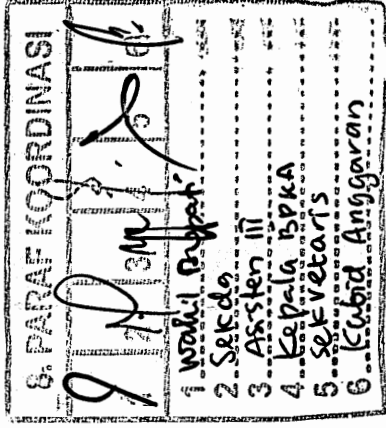 8. PARAF KOORDINASI
1 2 3 4 5 6
1 Wakil Bupati
2 Sekda
3 Asisten III
4 Kepala BPKA
5 Sekretaris
6 Kabid Anggaran